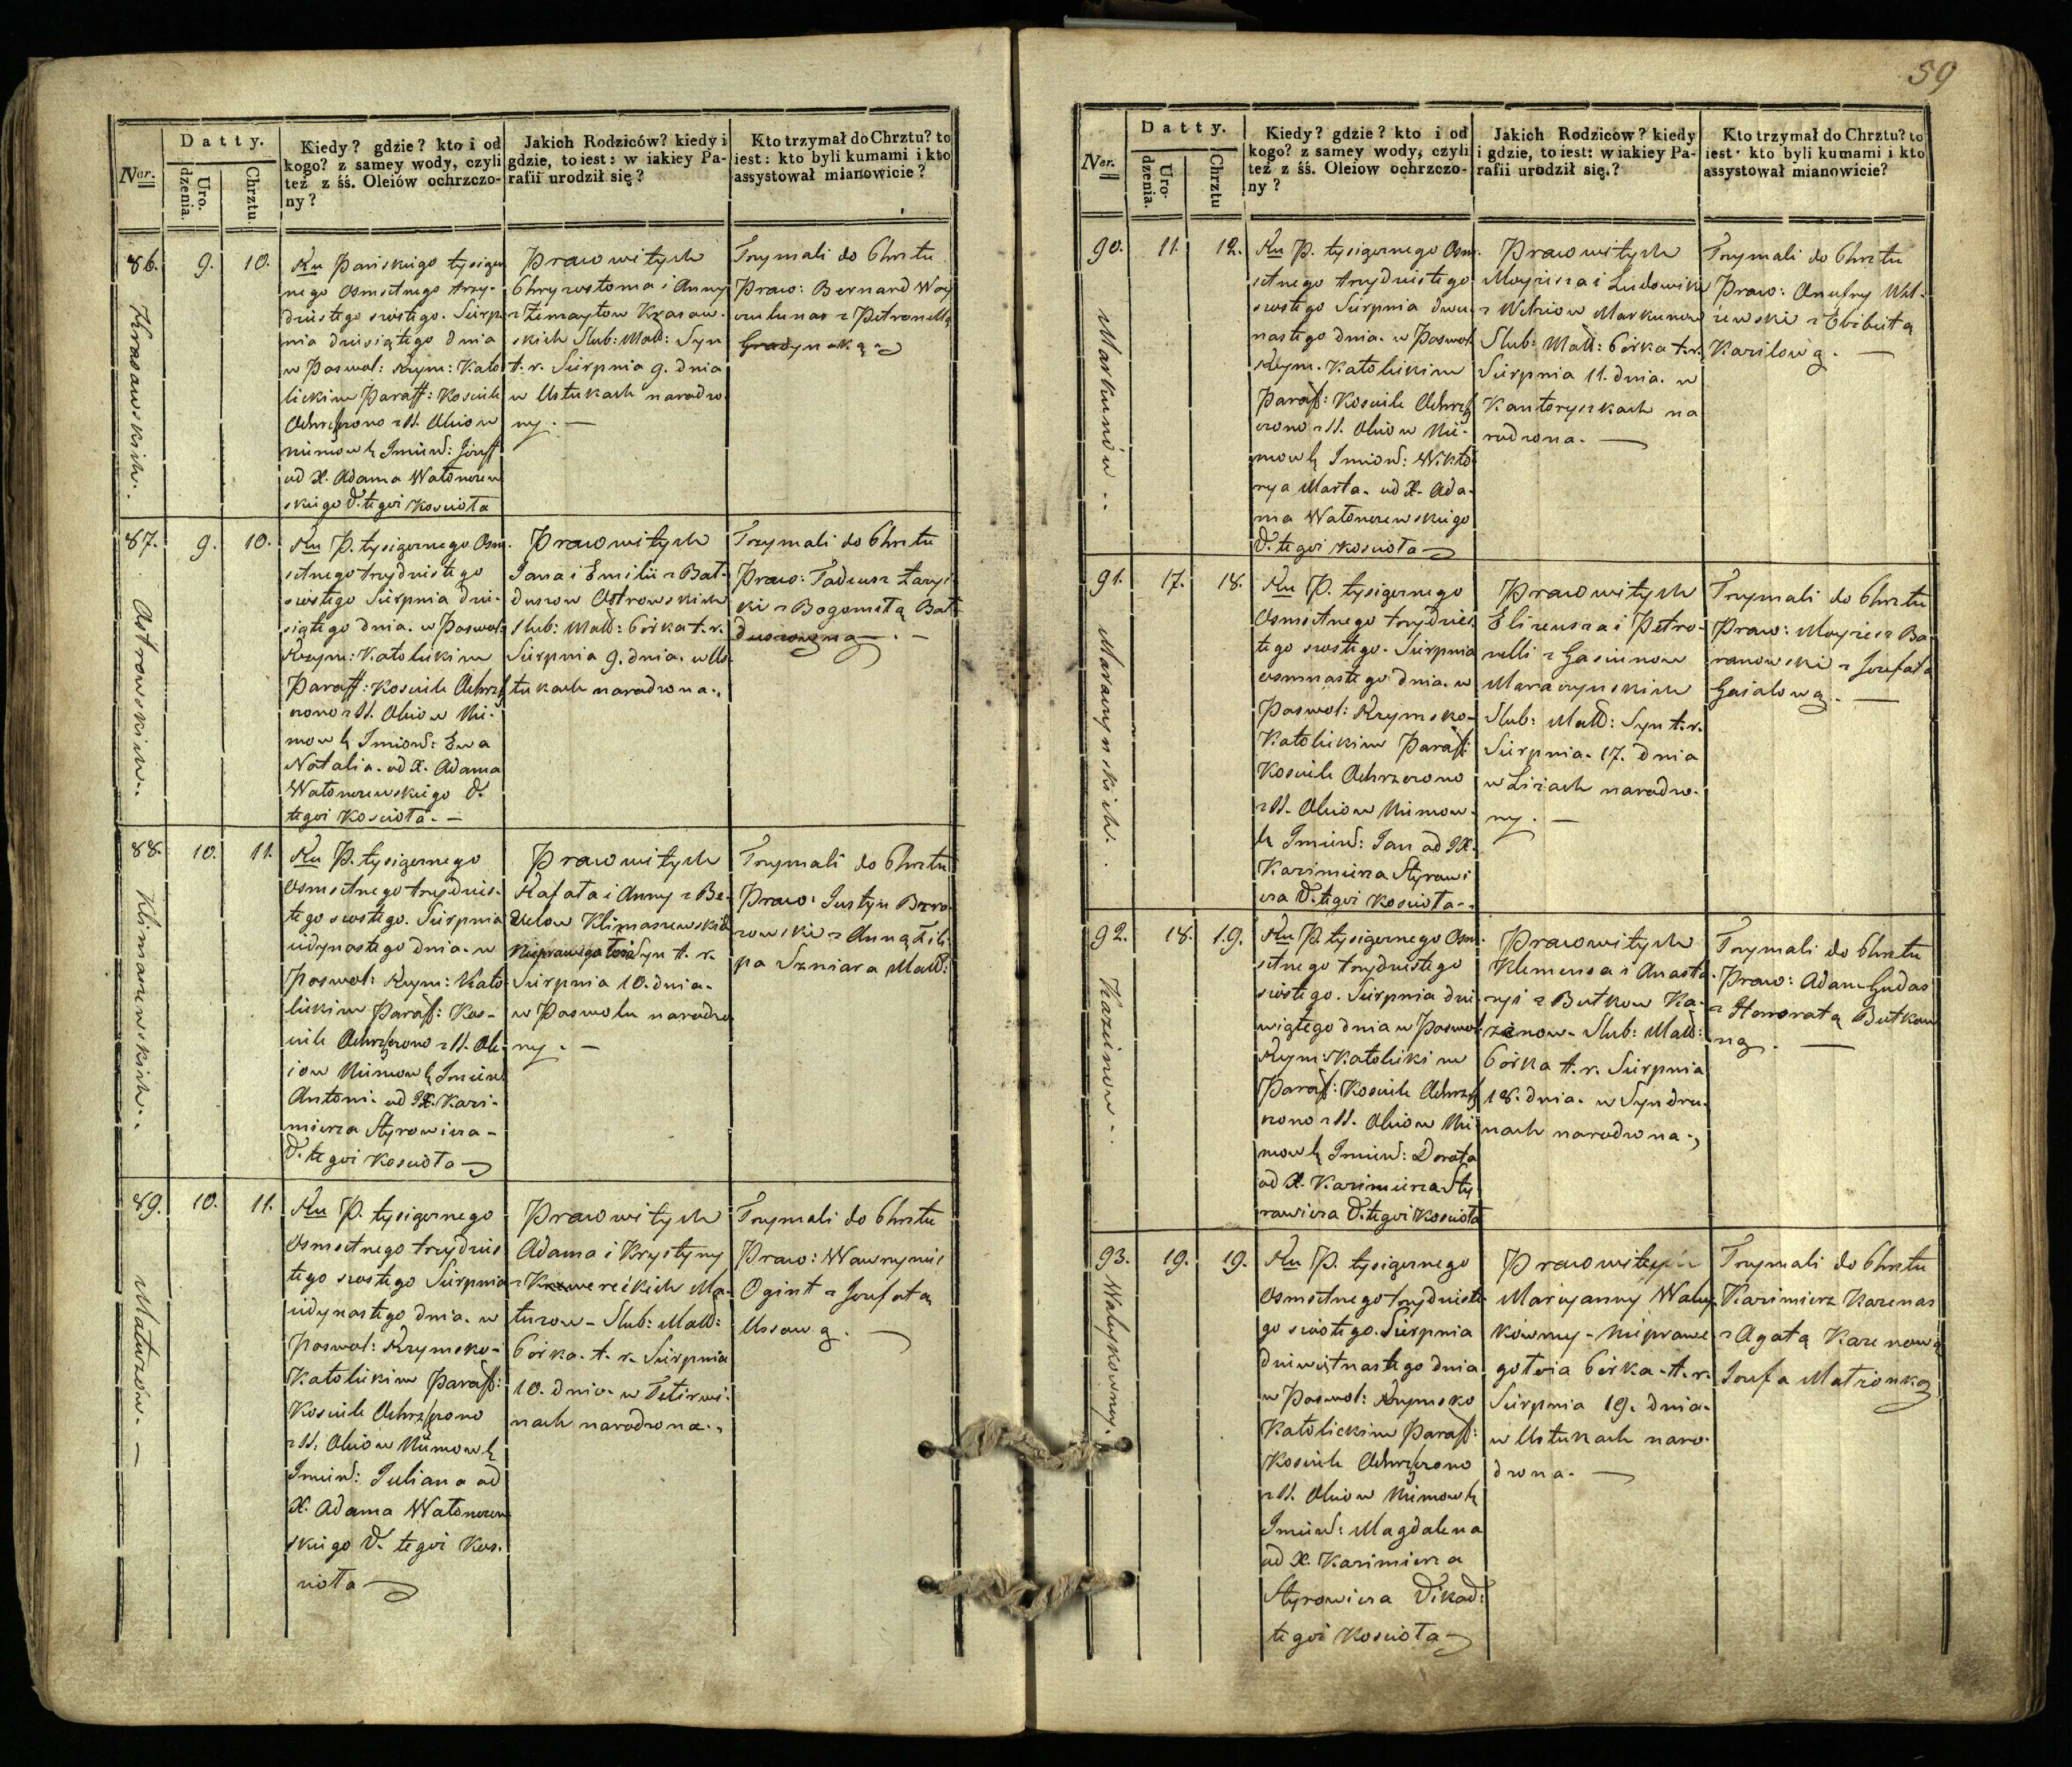 59
Ner.
Datty.
Uro-
dzenia.
Chrztu.
Kiedy? gdzie? kto i od
kogo? z samey wody, czyli
też z śś. Oleiów ochrzczo-
ny?
Jakich Rodziców? kiedy i
gdzie, to iest: w iakiey Pa-
rafii urodził się?
Kto trzymał do Chrztu? to
iest: kto byli kumami i kto
assystował mianowicie?
86.
Krasowskich.
9.
10.
Ru Pańskiego tysiącz
nego Osmsetnego trzy-
dziestego szostego. Sierp
nia dziesiątego dnia
w Poswol: Rzym: Kato
lickim Paraff: Kościele
Ochrzczono z SS. Oleiow
niemowlę Imien: Jozeff
od X. Adama Watonczew
skiego W. tegoż Kościoła
Prawowitych
Chryzostoma i Anny
z Zimaytow Krasow-
skich Slub: Małż: Syn
t. r. Sierpnia 9. dnia
w Ustukach narodzo
ny. —
Trzymali do Chrztu
Praw: Bernard Woy
z Petronellą
87.
Ostrowskich.
9.
10.
Ru P. tysiącznego Osm
setnego trzydziestego
szostego Sierpnia dzie-
siątego dnia. w Poswol:
Rzym: Katolickim
Paraff: Kościele Ochrz
czono z SS. Oleiow Nie-
mowlę Imion: Ewa
Natalia. od X. Adama
Watonczewskiego W.
tegoż Kościoła. —
Prawowitych
Jana i Emilii z Bat-
duszow Ostrowskich
Slub: Małż: Córka t. r.
Sierpnia 9. dnia. w Us-
tukach narodzona.
Trzymali do Chrztu
Praw: Tadeusz
ki z Bogomiłą Bat
88.
Klimaszewskich.
10.
11.
Ru P. tysiącznego
Osmsetnego trzydzies-
tego szostego. Sierpnia
iedynastego dnia. w
Poswol: Rzym: Kato
lickim Paraff: Koś-
ciele Ochrzczono z SS. Ole
iow Niemowlę Imien
Antoni. od JX. Kazi-
mierza Styrowicza -
W. tegoż Kościoła
Prawowitych
Rafała i Anny z Be-
Klimaszewskich
Syn t. r.
Sierpnia 10. dnia.
w Poswolu narodzo
ny. —
Trzymali do Chrztu
Praw: Justyn Brzo
zowski z Anną Fili
pa Szniara Małż:
89.
Maturzow. —
10.
11.
Ru P. tysiącznego
Osmsetnego trzydzies
tego szostego Sierpnia
iedynastego dnia. w
Poswol: Rzymsko-
Katolickim Paraff:
Kościele Ochrzczono
z SS. Oleiow Niemowlę
Imien: Juliana od
X. Adama Watonczew
skiego W. tegoż Koś-
cioła
Prawowitych
Adama i Krystyny
Ma-
turow - Slub: Małż:
Córka. t. r. Sierpnia
10. dnia. w Tetirwi-
nach narodzona.
Trzymali do Chrztu
Praw: Wawrzyniec
Ogint z Jozefatą
Ussową. —
Ner.
Datty.
Uro-
dzenia.
Chrztu
Kiedy? gdzie? kto i od
kogo? z samey wody, czyli
też z śś. Oleiow ochrzczo-
ny?
Jakich Rodziców? kiedy
i gdzie, to iest: w iakiey Pa-
rafii urodził się.?
Kto trzymał do Chrztu? to
iest: kto byli kumami i kto
assystował mianowicie?
90.
Markunów.
11.
12.
Ru P. tysiącznego Osm
setnego trzydziestego
szostego Sierpnia dwu
nastego dnia. w Poswol
Rzym. Katolickim
Paraff: Kościele Ochrz
czono z SS. Oleiow Nie-
mowlę Imion: Wikto
rya Marta. od X. Ada-
ma Watonczewskiego
W. tegoż Kościoła
Prawowitych
Moyżesza i Ludowiki
z Markunow
Slub: Małż: Córka t. r.
Sierpnia 11. dnia. w
Kantoryszkach na
rodzona. —
Trzymali do Chrztu
Praw: Onufry Wal-
czewski z Elżbietą
Karilową. —
91.
Maraczynskich.
17.
18.
Ru P. tysiącznego
Osmsetnego trzydzies
tego szostego. Sierpnia
osmnastego dnia. w
Poswol: Rzymsko-
Katolickim Paraff:
Kościele Ochrzczono
z SS. Oleiow Niemow-
lę Imien: Jan od JX.
Kazimierza Styrowi
cza W. tegoż Kościoła.
Prawowitych
Elizeusza i Petro-
nelli z Gasiunow
Maraczynskich
Slub: Małż: Syn t. r.
Sierpnia. 17. dnia
w Liziach narodzo-
ny. —
Trzymali do Chrztu
Praw: Moyżesz Ba
ranowski z Jozefatą
Gasalową. —
92.
Kazinow.
18.
19.
Ru P. tysiącznego Osm
setnego trzydziestego
szostego. Sierpnia dzie
wiątego dnia w Poswol
Rzym: Katolickim
Paraff: Kościele Ochrz
czono z SS. Oleiow Nie
mowlę Imien: Dorota
od X. Kazimierza Sty-
rowicza W. tegoż Kościoła
Prawowitych
Klemensa i Anasta
zyi z Butkow Ka-
zenow - Slub: Małż:
Córka t. r. Sierpnia
18. dnia. w Syndru-
nach narodzona.
Trzymali do Chrztu
Praw: Adam Gudas
z Honoratą Butkow
ną. —
93.
Walujkowny.
19.
19.
Ru P. tysiącznego
Osmsetnego trzydzieste
go szostego. Sierpnia
dziewiętnastego dnia
w Poswol: Rzymsko
Katolickim Paraff:
Kościele Ochrzczono
z SS. Oleiow Niemowlę
Imien: Magdalena
od X. Kazimierza
Styrowicza Wikad:
tegoż Kościoła
Prawowitey
Maryanny Waluj-
kowny - Nieprawe
go łoża Córka - t. r.
Sierpnia 19. dnia.
w Ustukach naro-
dzona. —
Trzymali do Chrztu
Kazimierz Karenas
z Agatą Karenową
Jozefa Małżonką